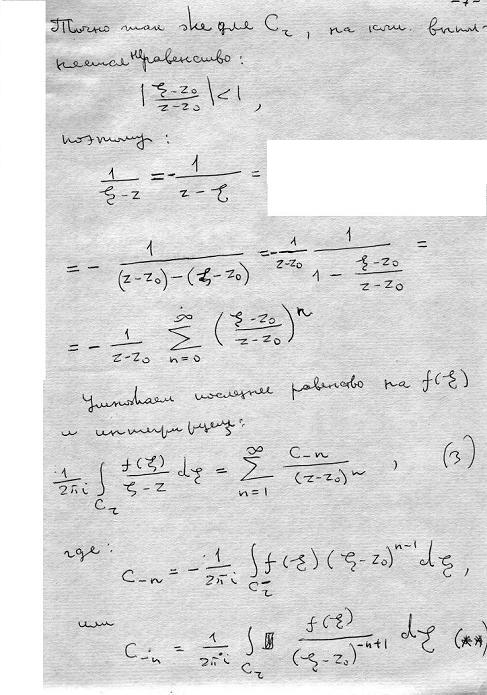 -7-
Точно так же для C_r, на кот. выпол-
няется неравенство:
|(ξ-z₀)/(z-z₀)| < 1,
поэтому:
1/(ξ-z) = -1/(z-ξ) =
= - 1/((z-z₀)-(ξ-z₀)) = -1/(z-z₀) · 1/(1 - (ξ-z₀)/(z-z₀)) =
= - 1/(z-z₀) ∑_{n=0}^{∞} ((ξ-z₀)/(z-z₀))^n
Умножаем последнее равенство на f(ξ)
и интегрируем:
1/(2πi) ∫_{C_r} f(ξ)/(ξ-z) dξ = ∑_{n=1}^{∞} C_{-n}/(z-z₀)^n , (3)
где:
C_{-n} = - 1/(2πi) ∫_{C_r} f(ξ)(ξ-z₀)^{n-1} dξ,
или
C_{-n} = 1/(2πi) ∫_{C_r} f(ξ)/(ξ-z₀)^{-n+1} dξ (**)